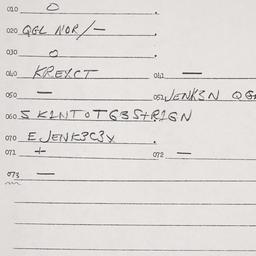 010 O
020 QGL NOR/—
030 O
040 KREYCT 041 —
050 — 051 JENK3N QG
060 5 K1NTOTG35+R1GN
070 EJENK3C3X
071 + 072 —
073 —